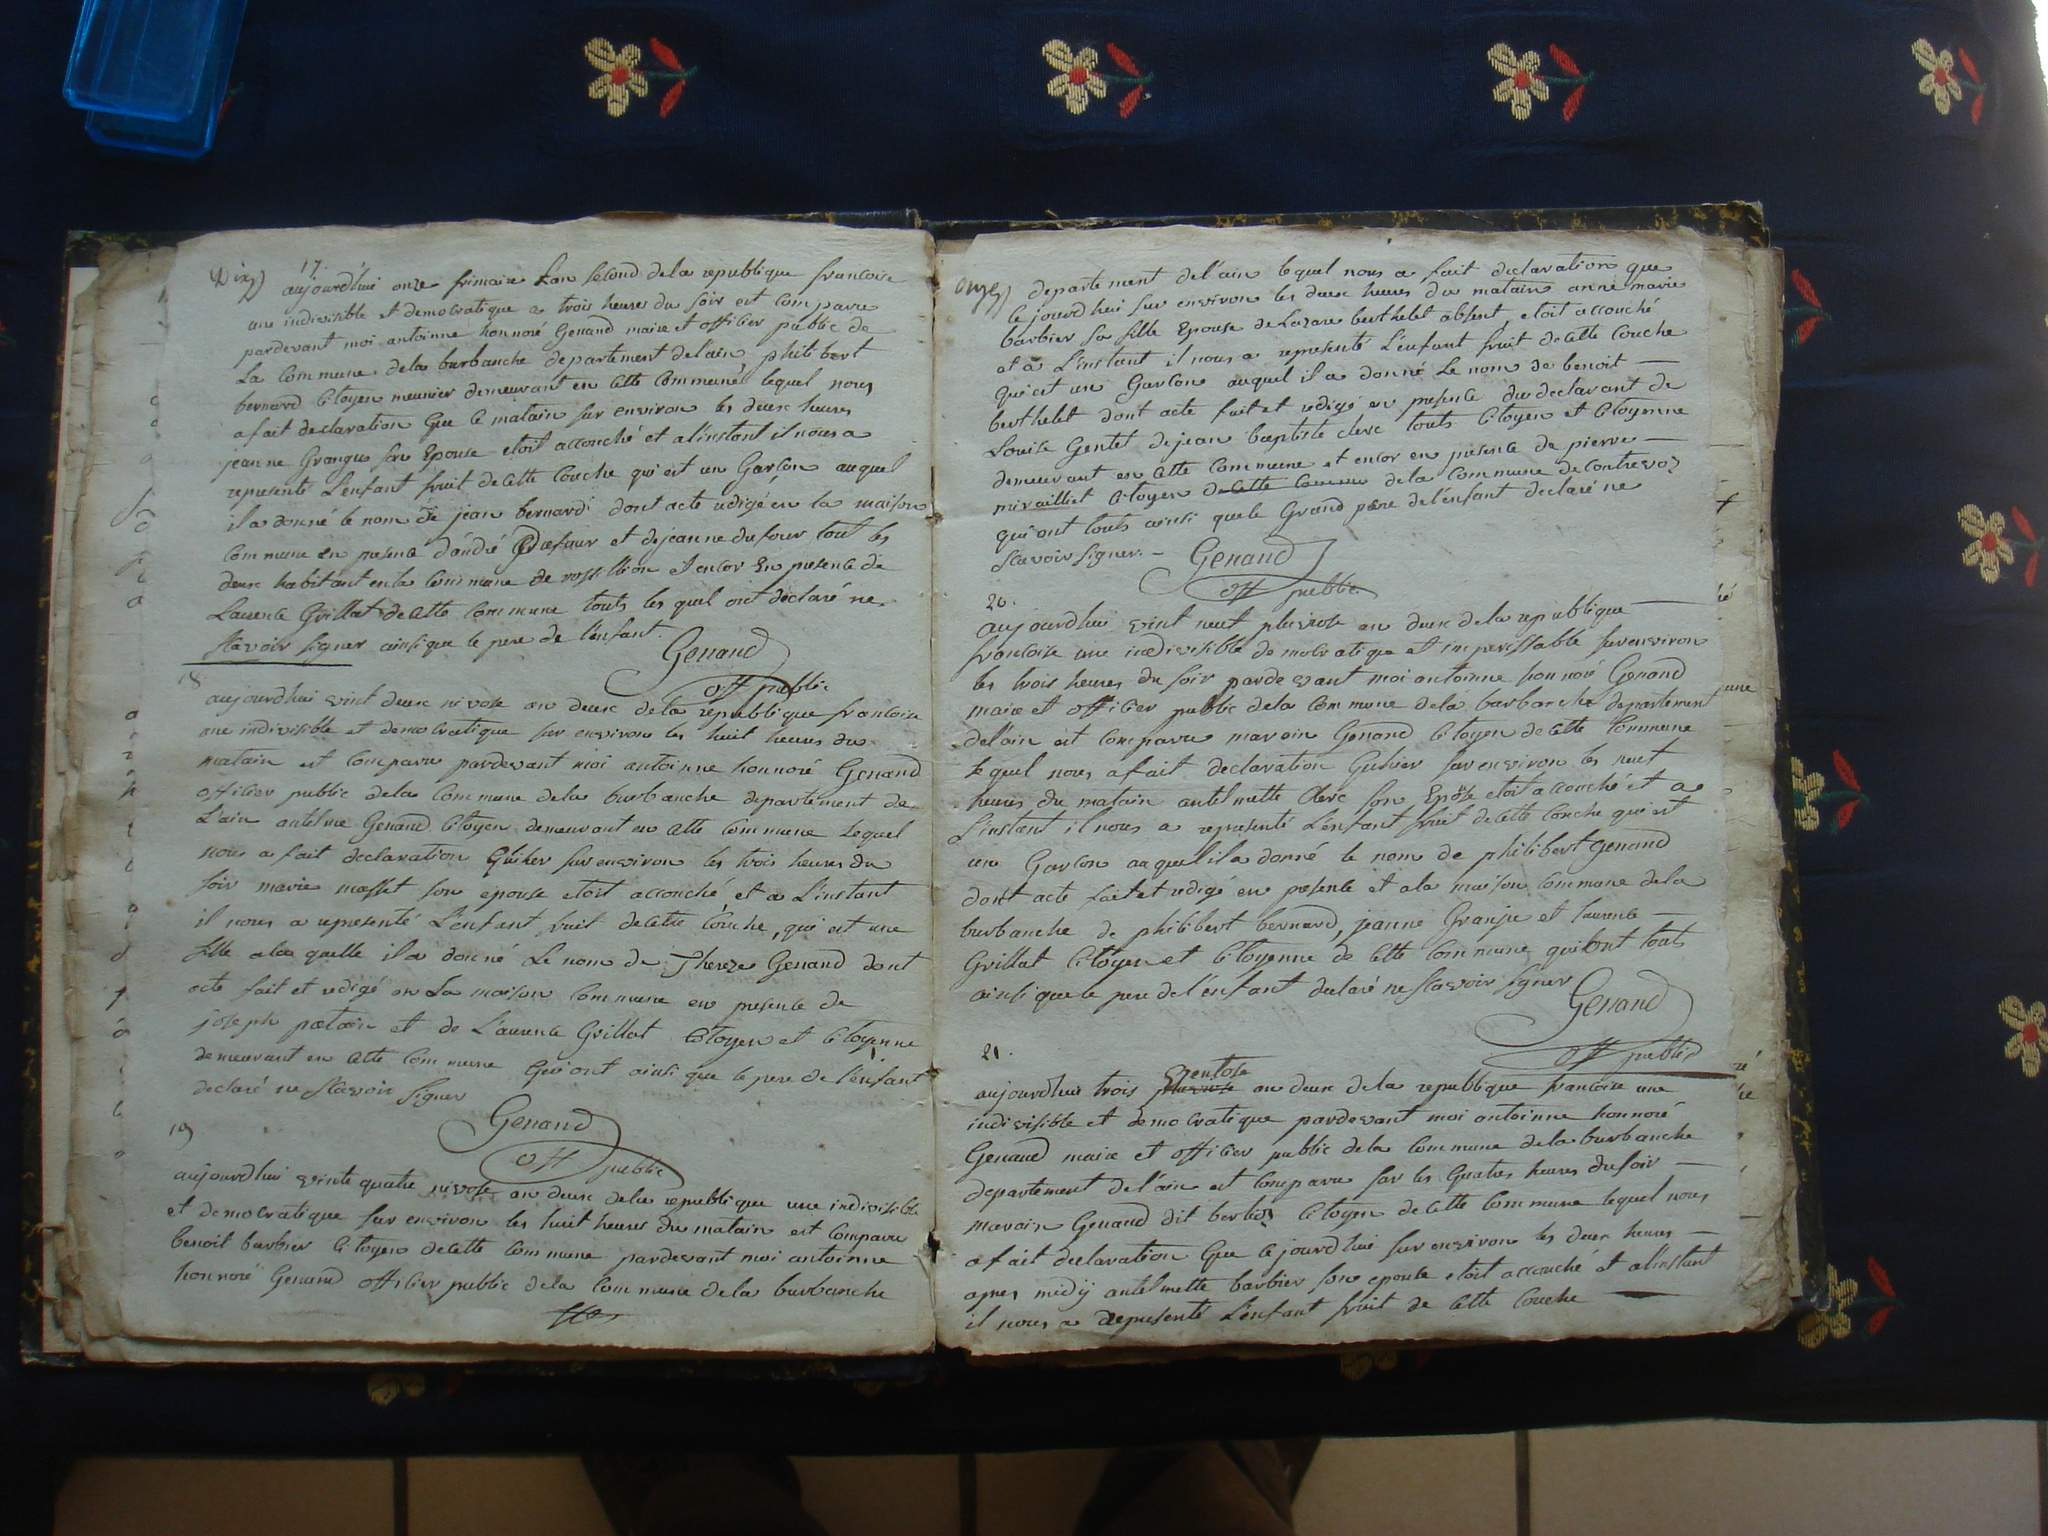 Dix
17.
aujourd'hui onze frimaire L'an second de la republique francoise
une indivisible et democratique a trois heures du soir est comparu
pardevant moi antoinne honnoré Genand maire et officier public de
La commune de la burbanche departement de lain philibert
bernard citoyen meunier demeurant en cette commune lequel nous
a fait declaration que ce matain sur environ les deux heures
jeanne Grangu son Epouse etoit accouché et a l'instant il nous a
representé L'enfant fruit de cette couche qui est un Garçon auquel
il a donné le nom de jean bernard dont acte redigé en la maison
commune en presence d'andré Dufour et de jeanne dufour tout les
deux habitant en la commune de rossillion et encor En presence de
Laurence Grillat de cette commune touts les quel ont declaré ne
scavoir signer ainsi que le pere de l'enfant.
Genand
off public
18
aujourdhui vint deux nivose an deux de la republique francoise
une indivisible et democratique sur environ les huit heures du
matain est comparu pardevant moi antoinne honnoré Genand
officier public de la commune de la burbanche departement de
L'ain antelme Genand citoyen demeurant en cette commune Lequel
nous a fait declaration Qu'hier sur environ les trois heures du
soir marie masset son epouse etoit accouché et a L'instant
il nous a representé L'enfant fruit de cette couche, qui est une
fille a la quelle il a donné Le nom de Thereze Genand dont
acte fait et redigé en La maison commune en presence de
joseph patain et de L'aurence Grillat citoyen et citoyenne
demeurant en cette commune Qui ont ainsi que le pere de l'enfant
declaré ne scavoir signer
Genand
off public
19
aujourdhui vinte quatre nivose an deux de la republique une indivisible
et democratique sur environ les huit heures du matain est comparu
benoit barbier citoyen de cette commune pardevant moi antoinne
honnoré Genand officier public de la commune de la burbanche
onze
departement de l'ain lequel nous a fait declaration que
ce jourdhui sur environ les deux heures du matain anne marie
barbier sa fille Epouse de Lazare berthelet absent etoit accouché
et a L'instant il nous a representé L'enfant fruit de cette couche
qui est un Garcon auquel il a donné Le nom de benoit
berthelet dont acte fait et redigé en presence du declarant de
Louise Gentet de jean baptiste clerc touts citoyen et citoyenne
demeurant en cette commune et encor en présence de pierre
miraillet citoyen de cette commune de la commune de contrevoz
qui ont touts ainsi que le Grand pere de l'enfant declaré ne
scavoir signer.
Genand
off public
20.
aujourdhui vint neuf pluviose an deux de la republique
francoise une indivisible democratique et imperissable sur environ
les trois heures du soir pardevant moi antoinne honnoré Genand
maire et officier public de la commune de la burbanche departement
de l'ain est comparu marain Genand citoyen de cette commune
le quel nous a fait declaration Qu'hier sur environ les neuf
heures du matain antelmette clerc son Epose etoit accouché et a
L'instant il nous a representé L'enfant fruit de cette couche qui est
un Garcon au quel il a donné le nom de philibert Genand
dont acte fait et redigé en presence et a la maison commune de la
burbanche de philibert bernard, jeanne Granju et laurence
Grillat citoyen et citoyenne de cette commune qui ont touts
ainsi que le pere de l'enfant declaré ne scavoir signer
Genand
off public
21.
ventose
aujourdhui trois pluviose an deux de la republique francoise une
indivisible et democratique pardevant moi antoinne honnoré
Genand maire et officier public de la commune de la burbanche
departement de l'ain est comparu sur les Quatres heures du soir
marain Genand dit berlioz citoyen de cette commune lequel nous
a fait declaration Que ce jourdhui sur environ les deux heures
apres midÿ antelmette barbier son epouse etoit accouché et a l'instant
il nous a representé L'enfant fruit de cette couche